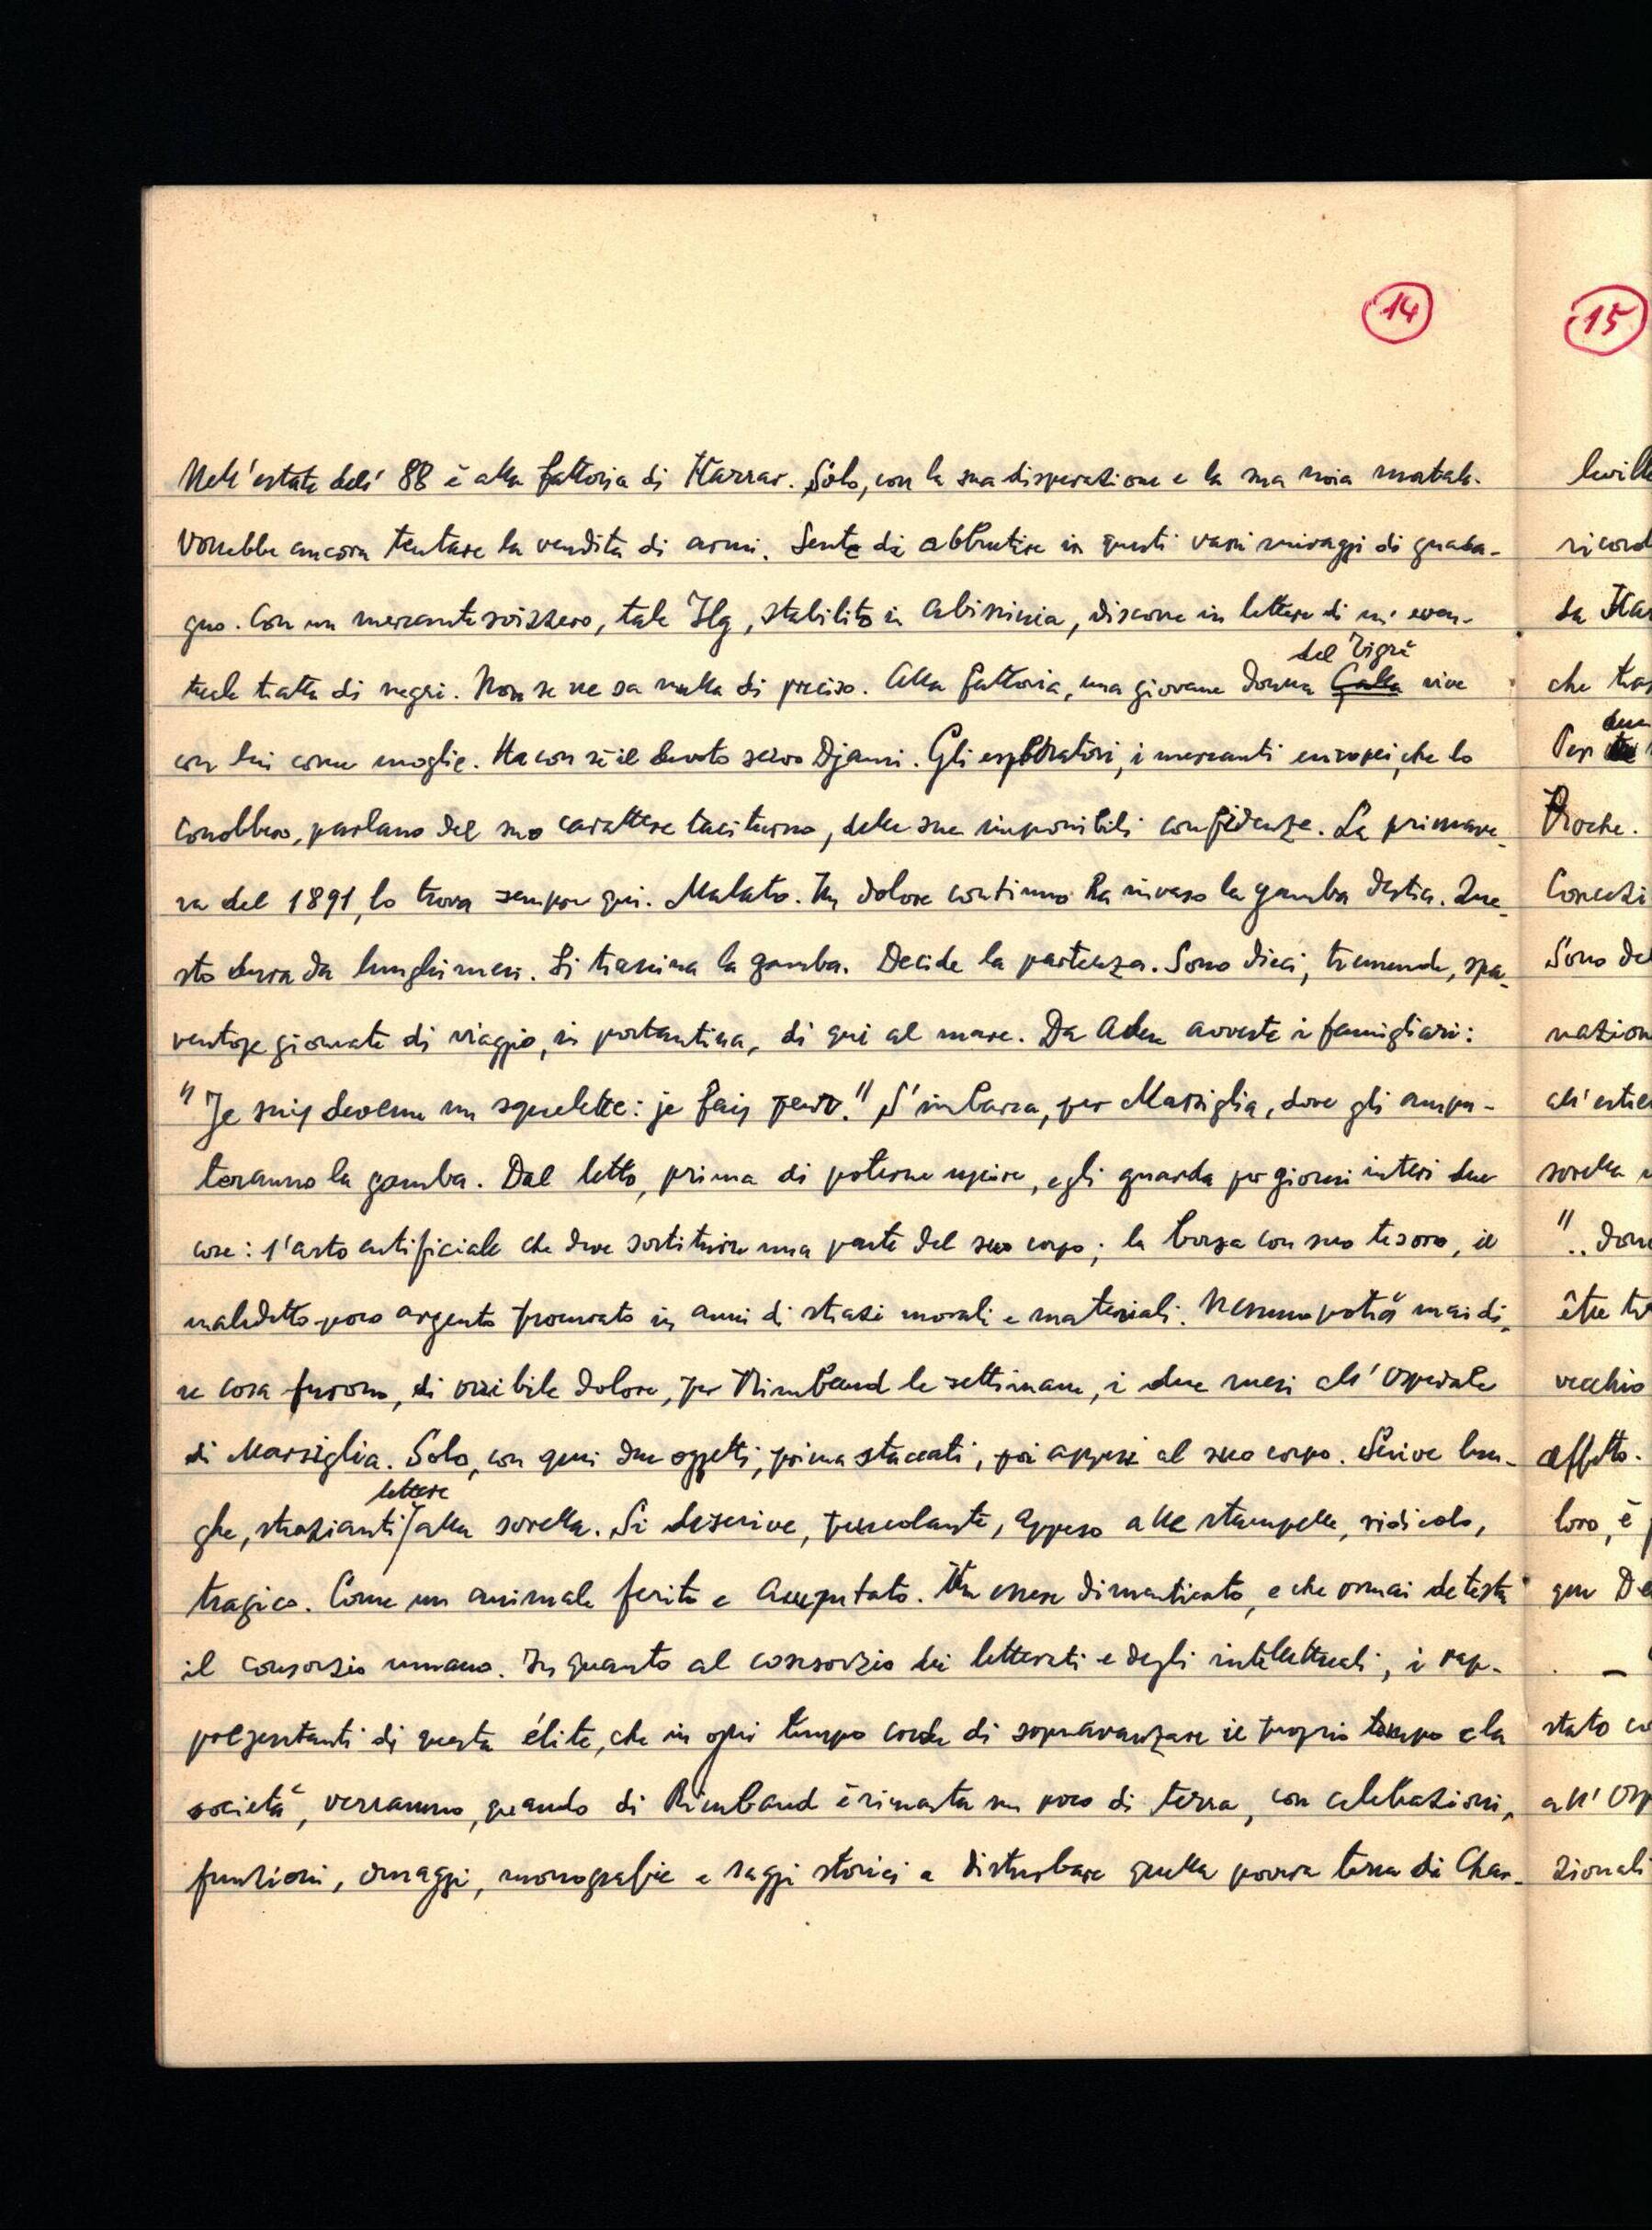 14
Nell'estate dell' 88 è alla fattoria di Harrar. Solo, con la sua disperazione e la sua noia mortale.
Vorrebbe ancora tentare la vendita di armi. Sente di abbrutire in questi vani miraggi di guada-
gno. Con un mercante svizzero, tale Ilg, stabilito in Abissinia, discorre in lettere di un' even-
tuale tratta di negri. Non se ne sa nulla di preciso. Alla fattoria, una giovane donna Galla del Tigrè vive
con lui come moglie. Ha con sè il devoto servo Djami. Gli esploratori, i mercanti europei, che lo
conobbero, parlano del suo carattere taciturno, delle sue impossibili confidenze. La primave-
ra del 1891, lo trova sempre qui. Malato. Un dolore continuo ha invaso la gamba destra. Que-
sto dura da lunghi mesi. Si trascina la gamba. Decide la partenza. Sono dieci, tremende, spa-
ventose giornate di viaggio, in portantina, di qui al mare. Da Aden avverte i famigliari:
"Je suis devenu un squelette: je fais peur." S'imbarca, per Marsiglia, dove gli ampu-
teranno la gamba. Dal letto, prima di poterne uscire, egli guarda per giorni interi due
cose: l'arto artificiale che deve sostituire una parte del suo corpo; la borsa con suo tesoro, il
maledetto poco argento procurato in anni di strazi morali e materiali. Nessuno potrà mai di-
re cosa furono, di orribile dolore, per Rimbaud le settimane, i due mesi all' Ospedale
di Marsiglia. Solo, con quei due oggetti, prima staccati, poi appesi al suo corpo. Scrive lun-
ghe, strazianti lettere alla sorella. Si descrive, penzolante, appeso alle stampelle, ridicolo,
tragico. Come un animale ferito e amputato. Un essere dimenticato, e che ormai detesta
il consorzio umano. In quanto al consorzio dei letterati e degli intellettuali, i rap-
presentanti di questa élite, che in ogni tempo crede di sopravanzare il proprio tempo e la
società, verranno, quando di Rimbaud è rimasta un poco di terra, con celebrazioni,
funzioni, omaggi, monografie e saggi storici a disturbare quella povera terra di Char-
15
leville
ricord
da Har
che tras
Per
Roche.
Sono del
nazion
all'estre
sorella
".. donc
être
vecchio
affetto.
loro, è
que De
stato co
all' Osp
zionali